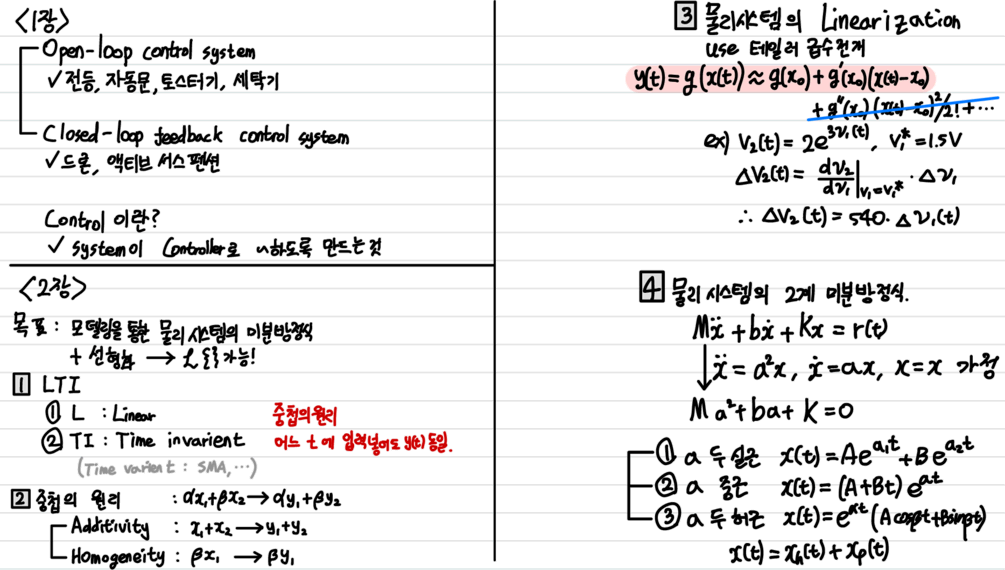 <1장>
Open-loop control system
✓ 전등, 자동문, 토스터기, 세탁기
Closed-loop feedback control system
✓ 드론, 액티브 서스펜션
Control 이란?
✓ system이 Controller로 ~하도록 만드는것
<2장>
목표 : 모델링을 통한 물리시스템의 미분방정식
+ 선형화 → ℒ{ } 가능!
1 LTI
① L : Linear 중첩의원리
② TI : Time invarient 어느 t에 입력넣어도 y(t) 동일.
(Time varient : SMA, ...)
2 중첩의 원리 : αx₁+βx₂ → αy₁+βy₂
Additivity : x₁+x₂ → y₁+y₂
Homogeneity : βx₁ → βy₁
3 물리시스템의 Linearization
use 테일러 급수전개
y(t) = g(x(t)) ≈ g(x₀) + g'(x₀)(x(t)-x₀)
+ g''(x₀)(x(t)-x₀)²/2! + ...
ex) V₂(t) = 2e^{3v₁(t)}, V₁* = 1.5V
ΔV₂(t) = dv₂/dv₁|_{v₁=v₁*} · Δv₁
∴ ΔV₂(t) = 540 · Δv₁(t)
4 물리시스템의 2계 미분방정식.
Mẍ + bẋ + Kx = r(t)
↓ ẍ = a²x, ẋ = ax, x = x 가정
Ma² + ba + K = 0
① a 두실근 x(t) = Ae^{a₁t} + Be^{a₂t}
② a 중근 x(t) = (A+Bt)e^{at}
③ a 두허근 x(t) = e^{αt}(Acosβt+Bsinβt)
x(t) = x_h(t) + x_p(t)